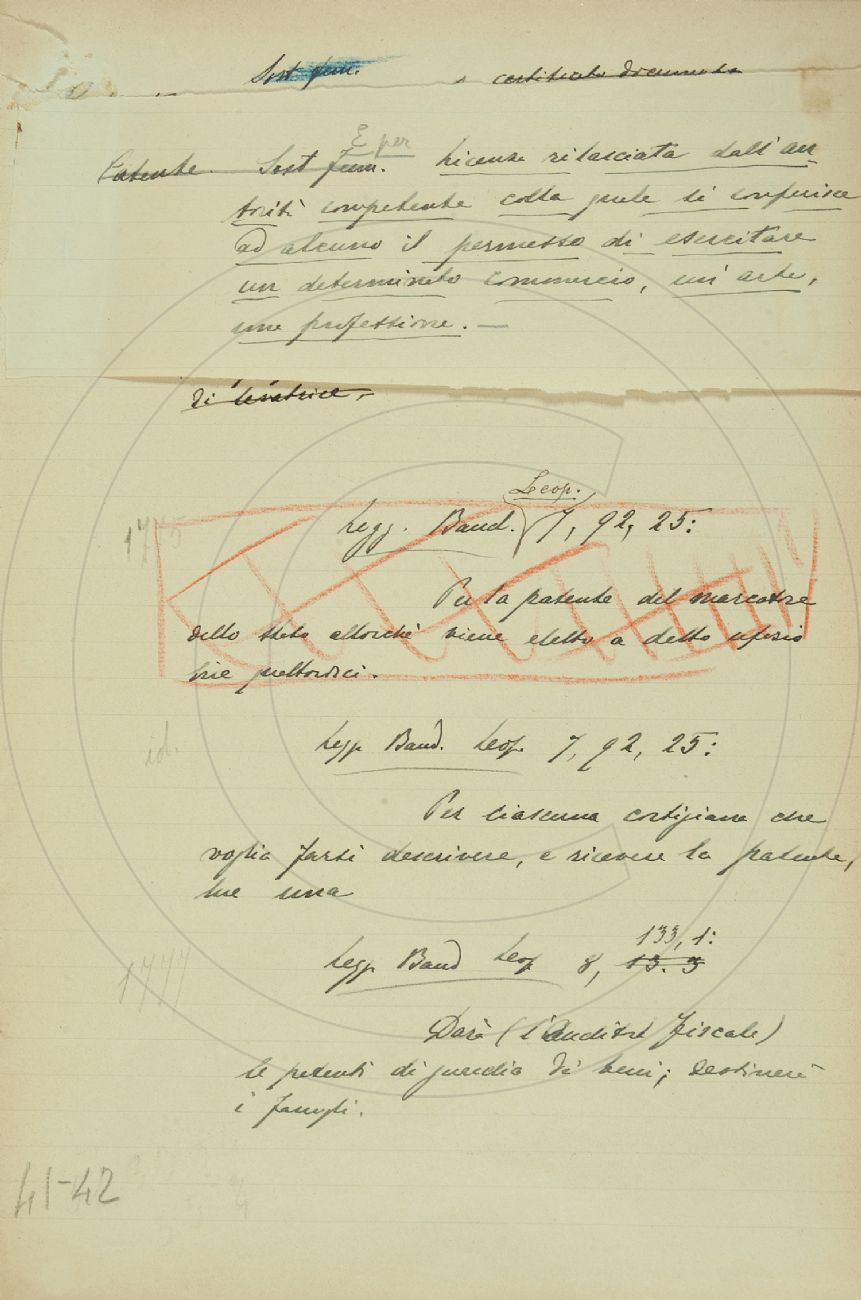 Sost. fem. certificato documento
E per
Patente. Sost. fem. Licenza rilasciata dall'au-
torità competente colla quale si conferisce
ad alcuno il permesso di esercitare
un determinato commercio, un'arte,
una professione. —
di levatrice. -
Leop.
1775 Legg. Band. 7, 92, 25:
Per la patente del marcatore
dello stato allorché viene eletto a detto ufizio
lire
id. Legg. Band. Leop. 7, 92, 25:
Per ciascuna cortigiana che
voglia farsi descrivere, e ricevere la patente,
lire una
133, 1:
1777 Legg. Band Leop 8, 13. 3
Darà (l'Auditore fiscale)
le patenti di guardia di beni; destinerà
i famigli.
41-42